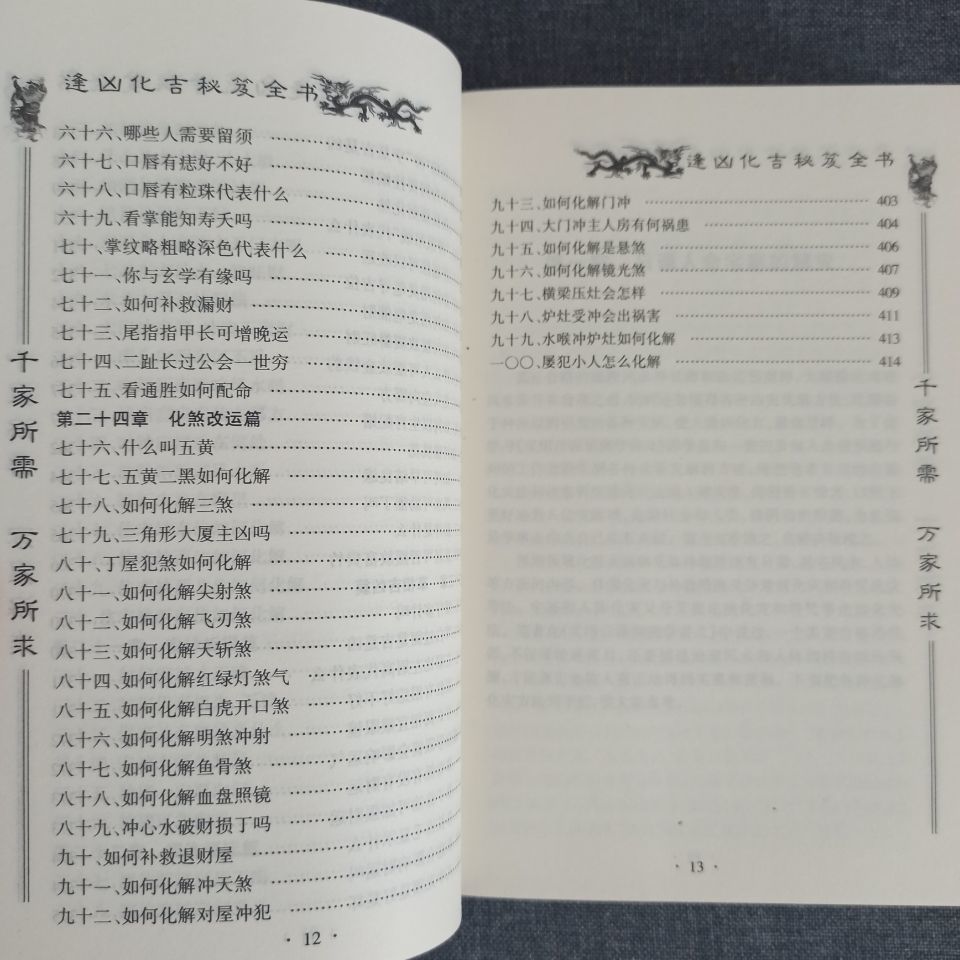 逢凶化吉秘笈全书
六十六、哪些人需要留须
六十七、口唇有痣好不好
六十八、口唇有粒珠代表什么
六十九、看掌能知寿夭吗
七十、掌纹略粗略深色代表什么
七十一、你与玄学有缘吗
七十二、如何补救漏财
七十三、尾指指甲长可增晚运
七十四、二趾长过公会一世穷
七十五、看通胜如何配命
第二十四章 化煞改运篇
七十六、什么叫五黄
七十七、五黄二黑如何化解
七十八、如何化解三煞
七十九、三角形大厦主凶吗
八十、丁屋犯煞如何化解
八十一、如何化解尖射煞
八十二、如何化解飞刃煞
八十三、如何化解天斩煞
八十四、如何化解红绿灯煞气
八十五、如何化解白虎开口煞
八十六、如何化解明煞冲射
八十七、如何化解鱼骨煞
八十八、如何化解血盘照镜
八十九、冲心水破财损丁吗
九十、如何补救退财屋
九十一、如何化解冲天煞
九十二、如何化解对屋冲犯
千家所需 万家所求
· 12 ·
逢凶化吉秘笈全书
九十三、如何化解门冲 403
九十四、大门冲主人房有何祸患 404
九十五、如何化解是悬煞 406
九十六、如何化解镜光煞 407
九十七、横梁压灶会怎样 409
九十八、炉灶受冲会出祸害 411
九十九、水喉冲炉灶如何化解 413
一〇〇、屡犯小人怎么化解 414
千家所需 万家所求
· 13 ·